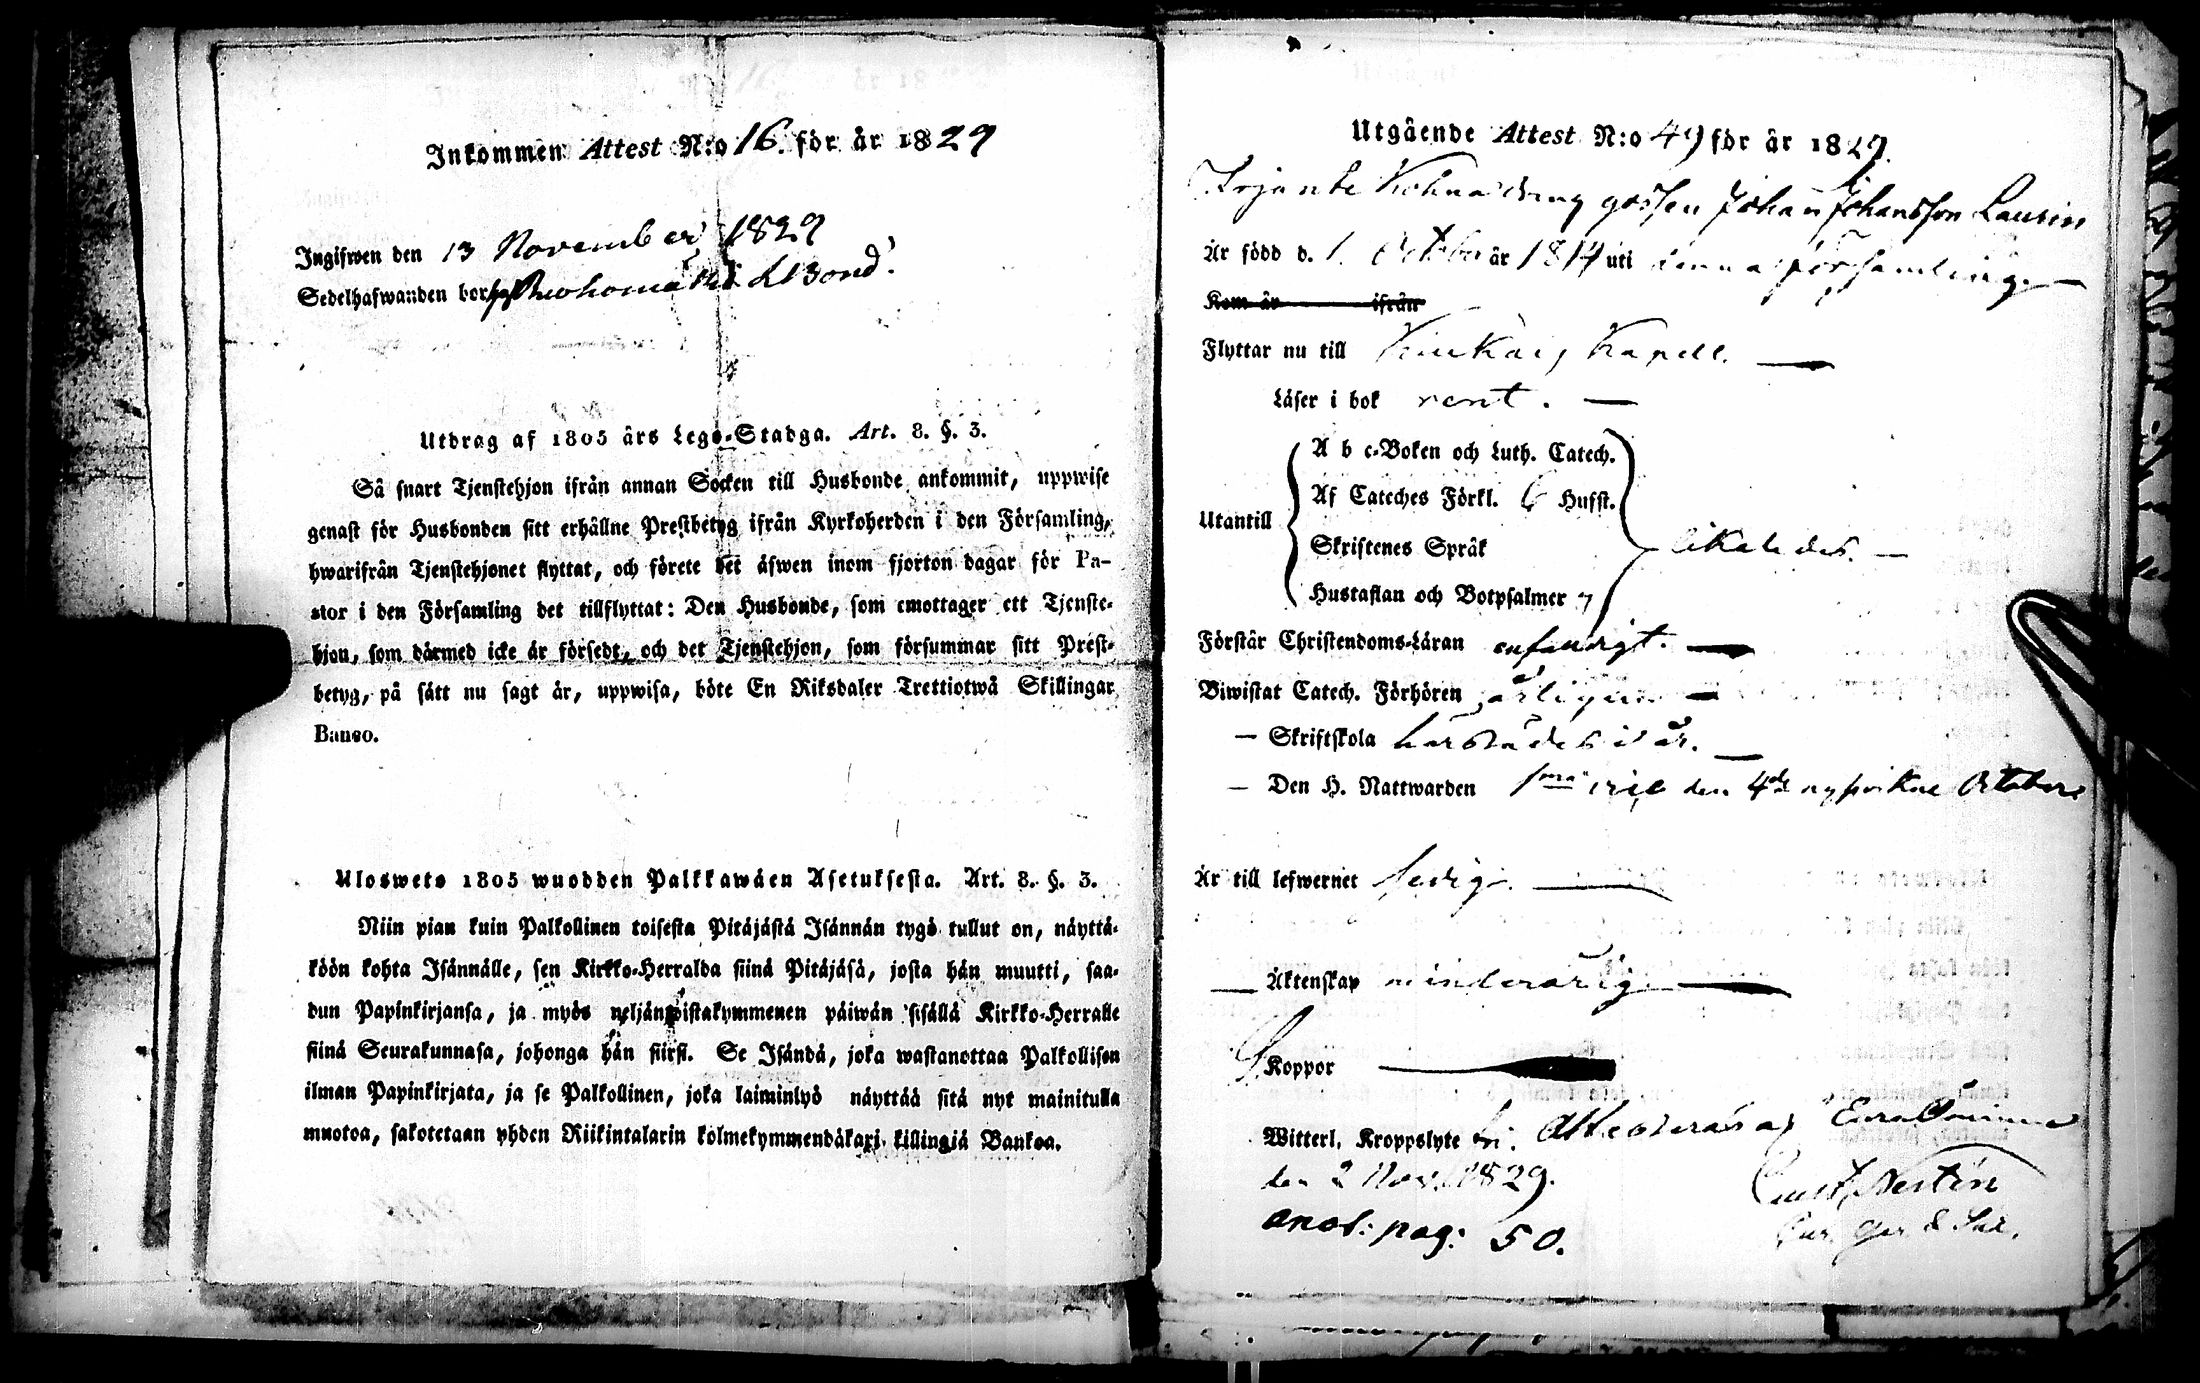 Inkommen Attest N:o 16. för år 1829
Ingifwen den 13 November 1829
Sedelhafwanden bor på
Utdrag af 1805 års Lego-Stadga. Art. 8. §. 3.
Så snart Tjenstehjon ifrån annan Socken till Husbonde ankommit, uppwise
genast för Husbonden sitt erhållne Prestbetyg ifrån Kyrkoherden i den Församling,
hwarifrån Tjenstehjonet flyttat, och förete det äfwen inom fjorton dagar för Pa-
stor i den Församling det tillflyttat: Den Husbonde, som emottager ett Tjenste-
hjon, som därmed icke är försedt, och det Tjenstehjon, som försummar sitt Prest-
betyg, på sätt nu sagt är, uppwisa, böte En Riksdaler Trettiotwå Skillingar
Banco.
Uloswets 1805 wuodden Palkkawäen Asetuksesta. Art. 8. §. 3.
Niin pian kuin Palkollinen toisesta Pitäjästä Isännän tygö tullut on, näyttä-
köön kohta Isännälle, sen Kirkko-Herralda siinä Pitäjäsä, josta hän muutti, saa-
dun Papinkirjansa, ja myös neljäntoistakymmenen päiwän sisällä Kirkko-Herralle
siinä Seurakunnasa, johonga hän siirsi. Se Isändä, joka wastanottaa Palkollisen
ilman Papinkirjata, ja se Palkollinen, joka laiminlyö näyttää sitä nyt mainitulla
muotoa, sakotetaan yhden Riikintalarin kolmekymmendäkaxi killingiä Bankoa.
Utgående Attest N:o 49 för år 1829.
gossen Johan Johansson Laurin
Är född d. 1. October år 1814 uti denna församling. —
Kom år ifrån
Flyttar nu till Kiukais Kapell. —
Läser i bok rent. —
Utantill
A b c-Boken och Luth. Catech.
Af Cateches Förkl. 6 Hufst.
Skriftenes Språk
Hustaflan och Botpsalmer 7
likaledes. —
Förstår Christendoms-Läran enfaldigt. —
Biwistat Catech. Förhören årligen —
— Skriftskola härstädes i år. —
— Den H. Nattwarden 1sta den 4de October
Är till lefwernet ledig. —
— Äktenskap minderårig —
Koppor —
Witterl. Kroppslyte fri. Attesteras af Eura
den 2 Nov. 1829.
Gust. Nestén
anot: pag: 50.